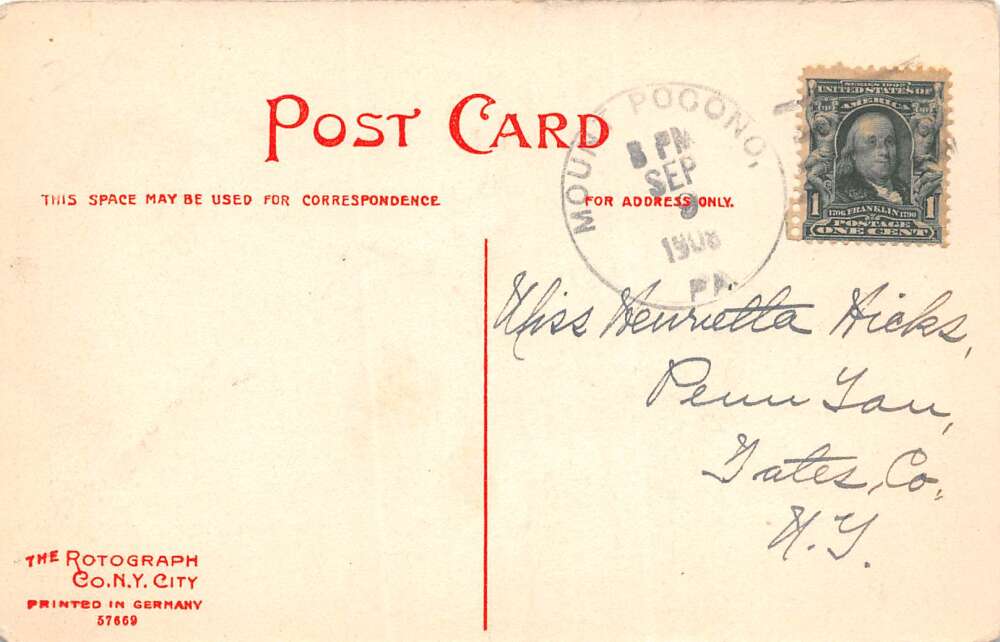 POST CARD
THIS SPACE MAY BE USED FOR CORRESPONDENCE
FOR ADDRESS ONLY.
MOUNT POCONO,
8 PM
SEP
9
1908
PA.
SERIES 1902
UNITED STATES OF
AMERICA
1706 FRANKLIN 1790
1 POSTAGE 1
ONE CENT
Miss Henrietta Hicks,
Penn Yan,
Yates, Co.
N.Y.
THE ROTOGRAPH
CO. N.Y. CITY
PRINTED IN GERMANY
57669